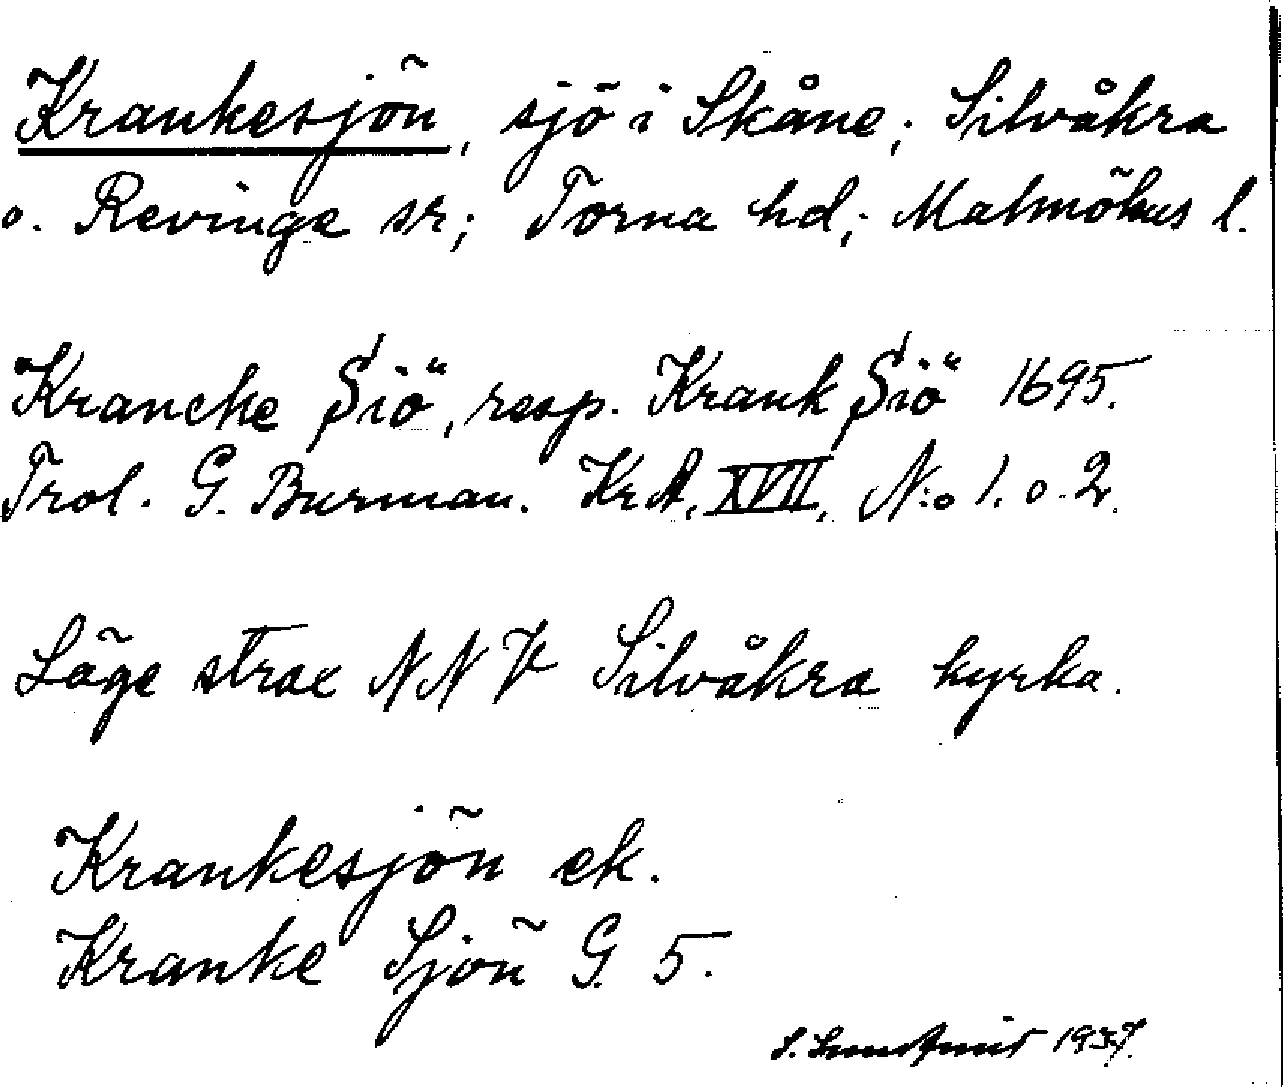 Krankesjön, sjö i Skåne; Silvåkra
o. Revinge sr; Torna hd; Malmöhus l.
Krancke Siö, resp. Krank Siö 1695.
Trol. G. Burman. KrA, XVII, N:o 1. o. 2.
Läge strax NNV Silvåkra kyrka.
Krankesjön ek.
Kranke Sjön G. 5.
S. 1937.